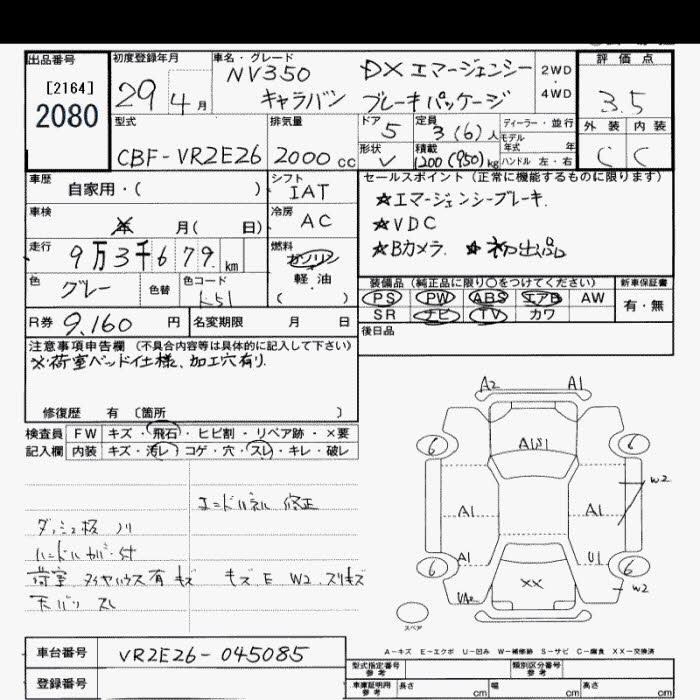 出品番号
[2164]
2080
初度登録年月
29 4月
車名・グレード
NV350 DX エマージェンシー
キャラバン ブレーキパッケージ
2WD
・
4WD
評価点
3.5
型式
CBF-VR2E26
排気量
2000cc
ドア 5
形状 V
定員
3(6)人
積載
1200(950)kg
ディーラー・並行
モデル
年式 年
ハンドル 左・右
外装 内装
C C
車歴
自家用・( )
シフト
IAT
セールスポイント(正常に機能するものに限ります)
☆エマージェンシーブレーキ.
☆VDC
☆Bカメラ. ☆初出品
車検
年 月( 日)
冷房
AC
走行
9万3千679km
燃料
ガソリン
軽・油
( )
色
グレー
色替
色コード
K51
装備品(純正品に限り○をつけてください)
PS PW ABS エアB AW
SR ナビ TV カワ
新車保証書
有・無
R券 9,160円
名変期限 月 日
後日品
注意事項申告欄(不具合内容等は具体的に記入して下さい)
※荷室ベッド仕様、加工穴有り
修復歴 有〔箇所 〕
検査員
記入欄
FW キズ・飛石・ヒビ割・リペア跡・×要
内装 キズ・汚レ・コゲ・穴・スレ・キレ・破レ
エンドパネル 修正
ダッシュ板 ノリ
ハンドルカバー付
荷室 タイヤハウス有 キズ キズ E W2 スリキズ
天バリ スレ
A2 A1
6 6
A1S1
W2
A1 A1
A1 U1
6 6
××
UA2 W2
スペア
A-キズ E-エクボ U-凹み W-補修跡 S-サビ C-腐食 XX-交換済
車台番号 VR2E26-045085
登録番号
型式指定番号
参考
類別区分番号
参考
車庫証明用
参考
長さ cm 幅 cm 高さ cm